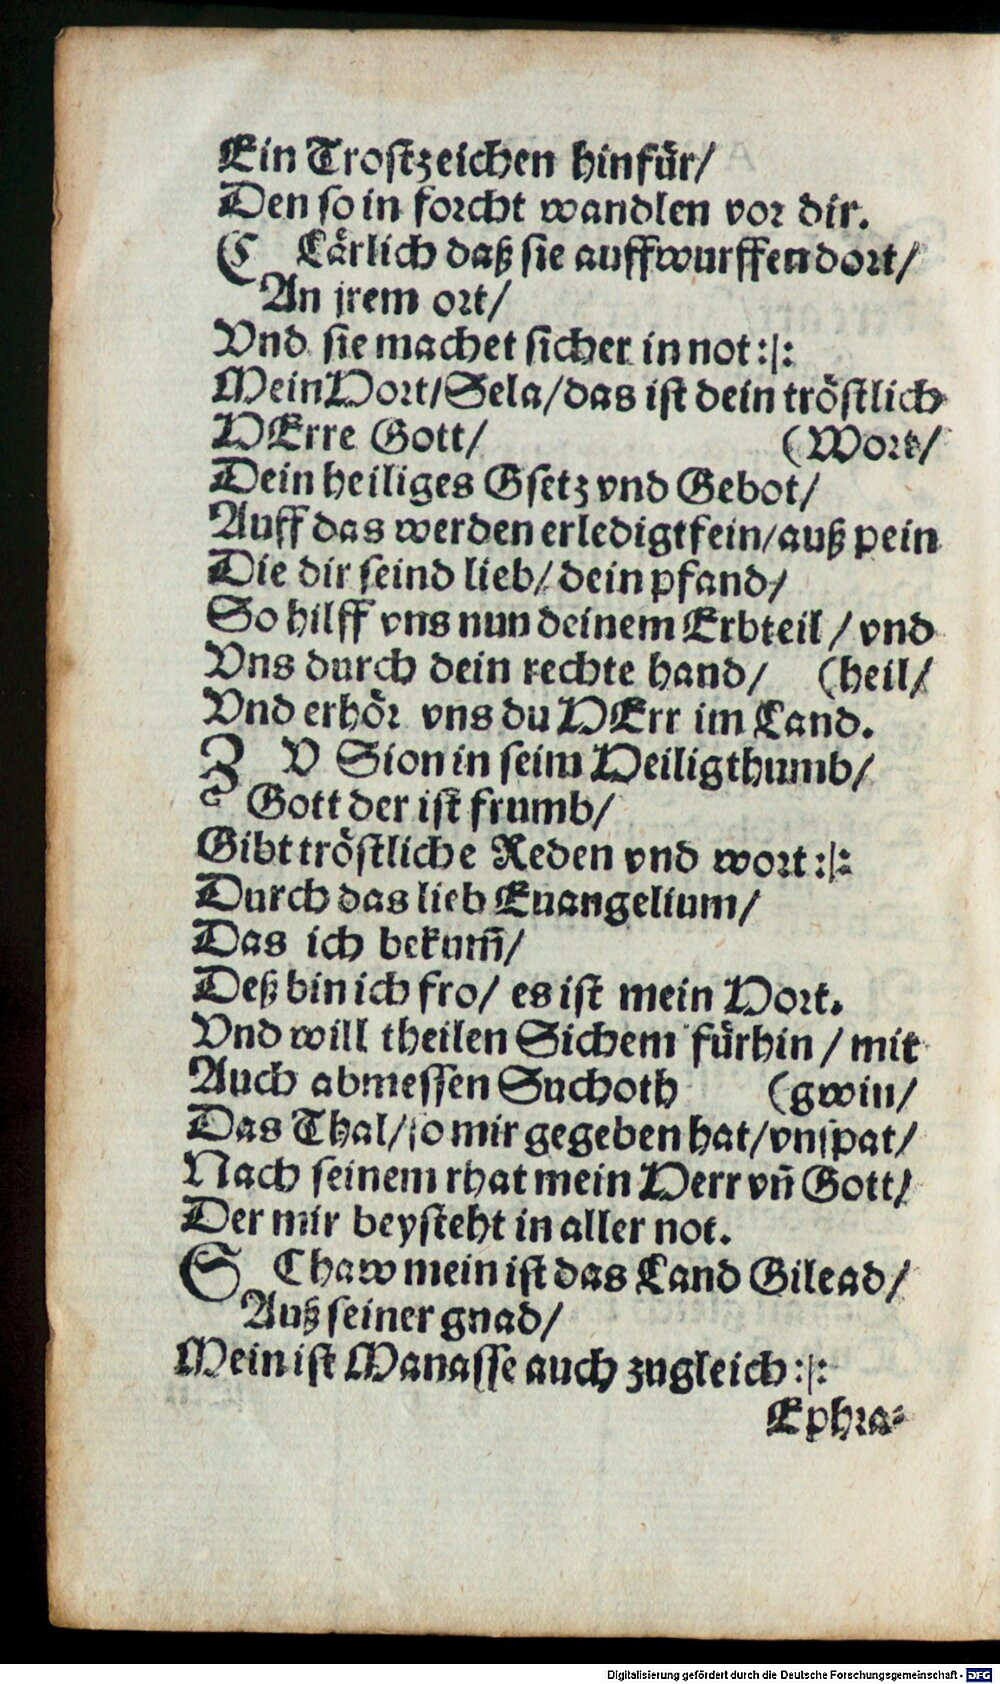 Ein Trostzeichen hinfür/
Den so in forcht wandlen vor dir.
CLärlich daß sie auffwurffen dort/
An jrem ort/
Vnd sie machet sicher in not :|:
Mein Hort/Sela/das ist dein tröstlich
HErre Gott/ (Wort/
Dein heiliges Gsetz vnd Gebot/
Auff das werden erledigt fein/auß pein
Die dir seind lieb/dein pfand/
So hilff vns nun deinem Erbteil / vnd
Vns durch dein rechte hand/ (heil/
Vnd erhör vns du HErr im Land.
ZV Sion in seim Heiligthumb/
Gott der ist frumb/
Gibt tröstliche Reden vnd wort :|:
Durch das lieb Euangelium/
Das ich bekum̃/
Deß bin ich fro/ es ist mein Hort.
Vnd will theilen Sichem fürhin / mit
Auch abmessen Suchoth (gwin/
Das Thal/so mir gegeben hat/vnspat/
Nach seinem rhat mein Herr vñ Gott/
Der mir beysteht in aller not.
SChaw mein ist das Land Gilead/
Auß seiner gnad/
Mein ist Manasse auch zugleich :|:
Ephra⸗
Digitalisierung gefördert durch die Deutsche Forschungsgemeinschaft - DFG